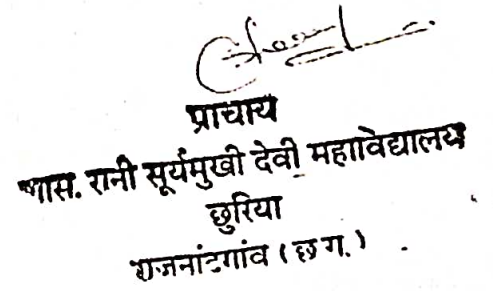 प्राचार्य
शास. रानी सूर्यमुखी देवी महाविद्यालय
छुरिया
राजनांदगांव (छ ग.)